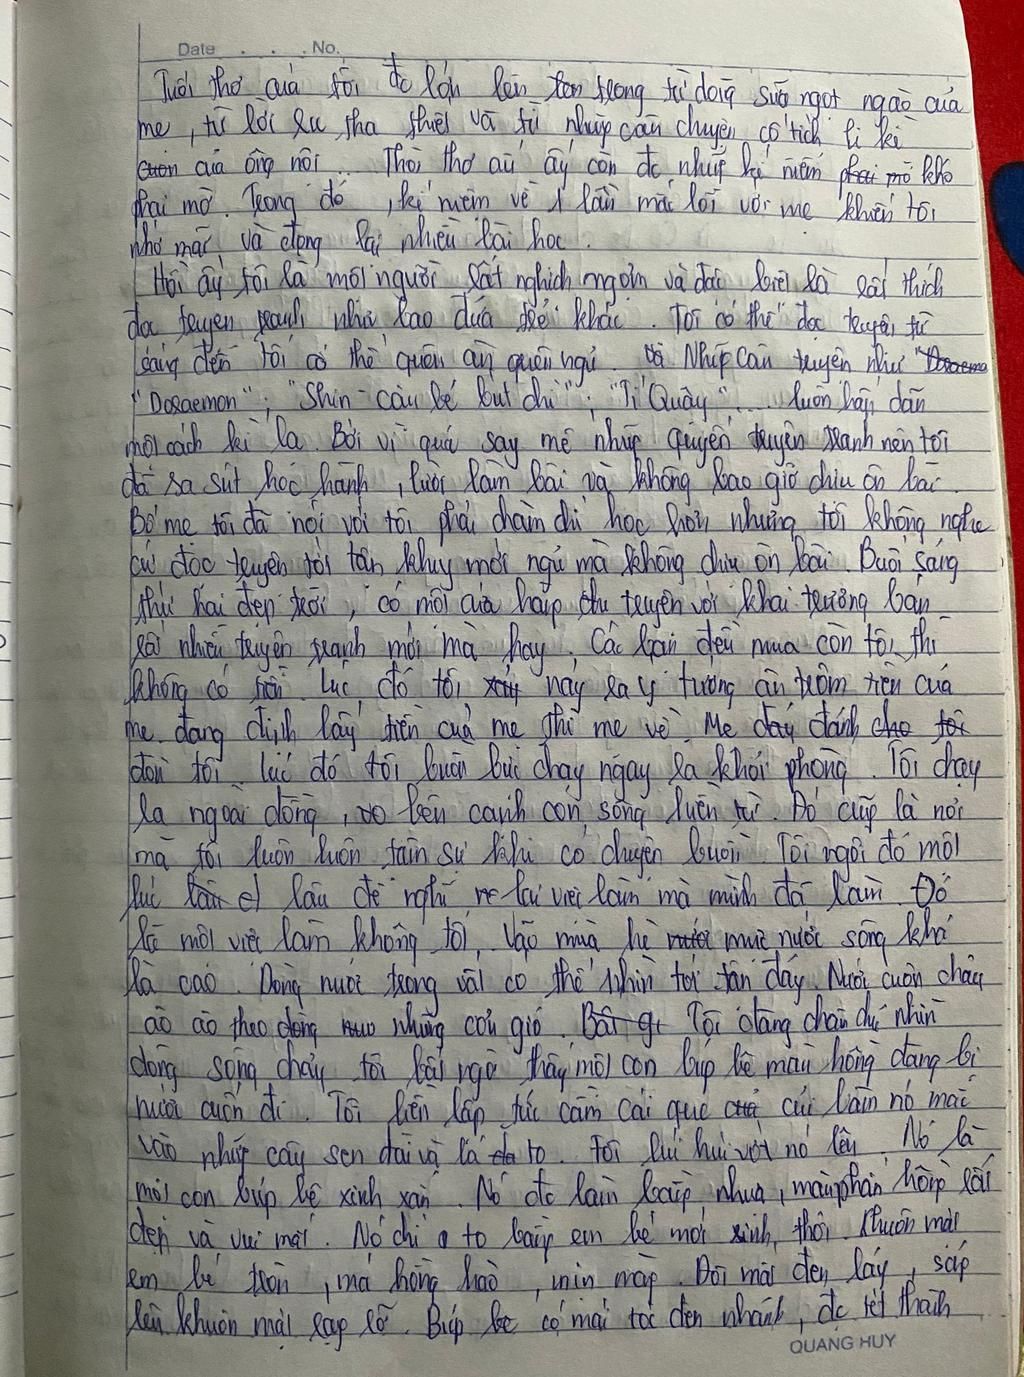 Date . . . No.
Tuổi thơ của tôi đc lớn lên trong từ dòng sữa ngọt ngào của
mẹ, từ lời ru tha thiết và từ những câu chuyện cổ tích li kì
của ông nội... Thời thơ ấu ấy còn đc những kỉ niệm khó
phai mờ. Trong đó, kỉ niệm về 1 lần mắc lỗi với mẹ khiến tôi
nhớ mãi và đọng lại nhiều bài học.
Hồi ấy tôi là một người rất nghịch ngợm và đặc biệt là rất thích
đọc truyện tranh như bao đứa trẻ khác. Tôi có thể đọc truyện từ
sáng đến tối có thể quên ăn quên ngủ. Những câu truyện như
"Doraemon"; "Shin - cậu bé bút chì"; "Tí Quậy".... luôn hấp dẫn
một cách kì lạ. Bởi vì quá say mê những quyển truyện tranh nên tôi
đã sa sút học hành, lười làm bài và không bao giờ chịu ôn bài.
Bố mẹ tôi đã nói với tôi phải chăm chỉ học hơn nhưng tôi không nghe
cứ đọc truyện tới tận khuya mới ngủ mà không chịu ôn bài. Buổi sáng
thứ hai đẹp trời, có một cửa hàng truyện với khai trương bán
rất nhiều truyện tranh mới mà hay. Các bạn đều mua còn tôi thì
không có tiền. Lúc đó tôi nảy ra ý tưởng ăn trộm tiền của
mẹ. đang định lấy tiền của mẹ thì mẹ về. Mẹ đánh
đòn tôi. Lúc đó tôi buồn bực chạy ngay ra khỏi phòng. Tôi chạy
ra ngoài đồng, bên cạnh con sông. Đó cũng là nơi
mà tôi luôn luôn tâm sự khi có chuyện buồn. Tôi ngồi đó một
lúc lâu để nghĩ về lại việc làm mà mình đã làm. Đó
là một việc làm không tốt. Vào mùa hè mực nước sông khá
là cao. Dòng nước trong vắt có thể nhìn tới tận đáy. Nước cuồn chảy
ào ào theo những cơn gió. Tôi đang chăm chú nhìn
dòng sông chảy tôi bất ngờ thấy một con búp bê màu hồng đang bị
nước cuốn đi. Tôi liền lập tức cầm cái que cứ làm nó mắc
vào những cây sen dài và lá to. Tôi lúi húi vớt nó lên. Nó là
một con búp bê xinh xắn. Nó đc làm bằng nhựa, màu phấn hồng rất
đẹp và vui mắt. Nó chỉ to bằng em bé mới sinh thôi. Khuôn mặt
em bé tròn, má hồng hào, mịn màng. Đôi mắt đen láy,
lên khuôn mặt rạng rỡ. Búp bê có mái tóc đen nhánh, đc tết thành
QUANG HUY